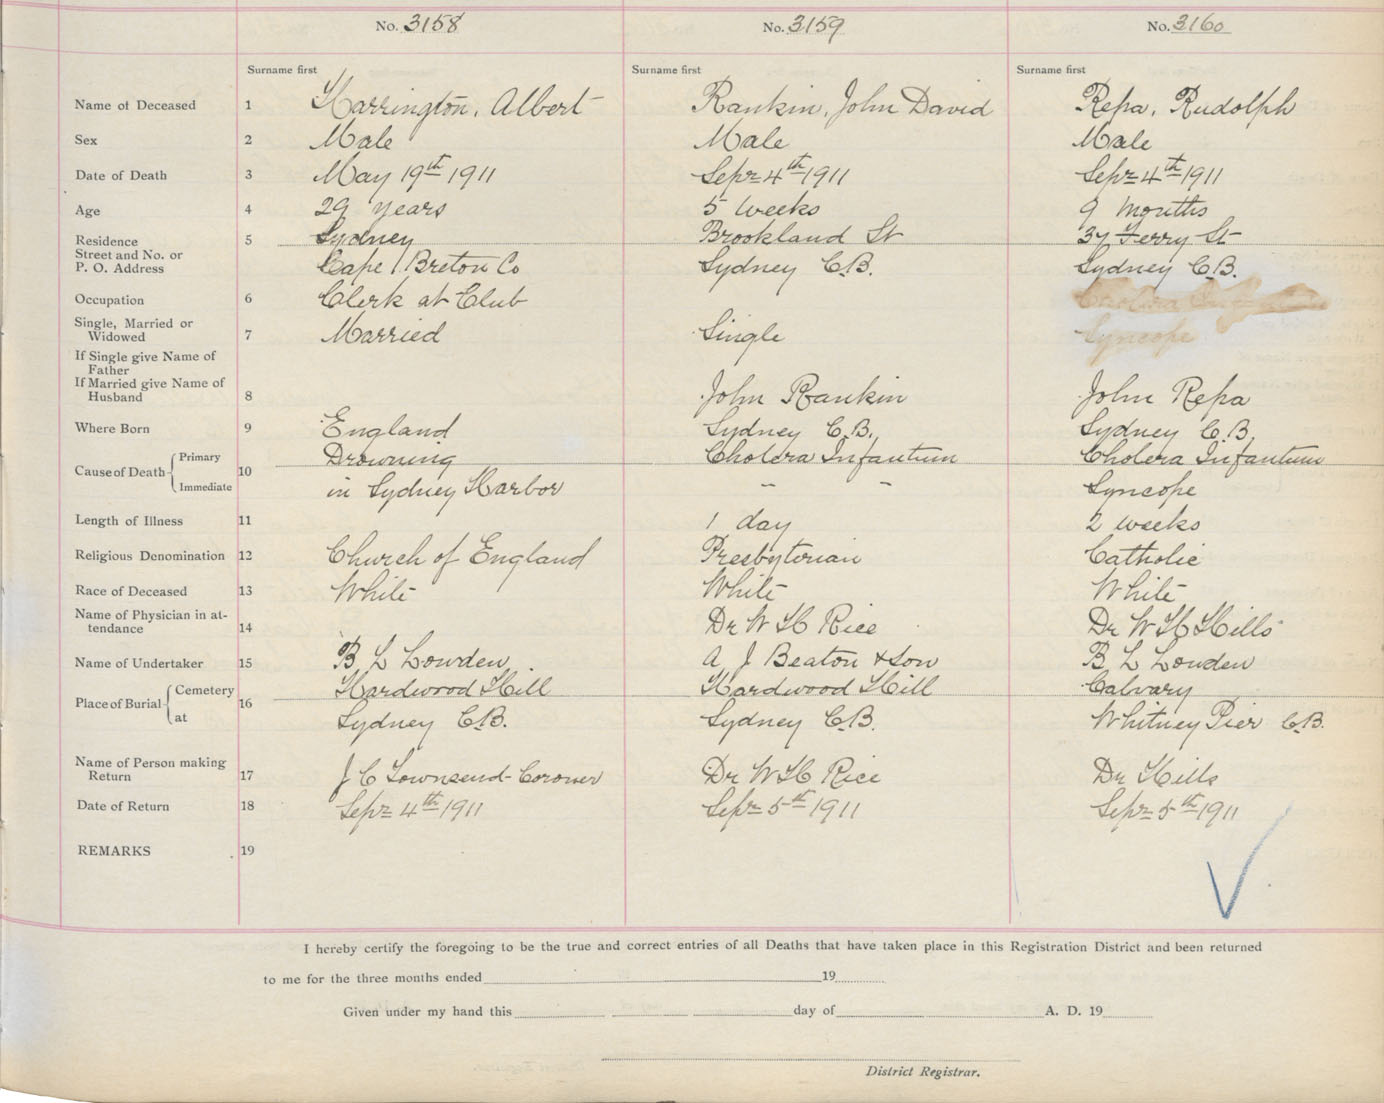 No. 3158 No. 3159 No. 3160
Surname first Surname first Surname first
Name of Deceased 1 Harrington, Albert Rankin, John David Repa, Rudolph
Sex 2 Male Male Male
Date of Death 3 May 19th 1911 Sepr 4th 1911 Sepr 4th 1911
Age 4 29 years 5 weeks 9 months
Residence 5 Sydney Brookland St 37 Ferry St
Street and No. or
P. O. Address Cape Breton Co Sydney C.B. Sydney C.B.
Occupation 6 Clerk at Club Cholera Infantum
Single, Married or
Widowed 7 Married Single Syncope
If Single give Name of
Father
If Married give Name of
Husband 8 John Rankin John Repa
Where Born 9 England Sydney C.B. Sydney C.B.
Cause of Death Primary 10 Drowning Cholera Infantum Cholera Infantum
Immediate in Sydney Harbor " " Syncope
Length of Illness 11 1 day 2 weeks
Religious Denomination 12 Church of England Presbytorian Catholic
Race of Deceased 13 White White White
Name of Physician in at-
tendance 14 Dr W H Rice Dr W H Hills
Name of Undertaker 15 B L Lowden A J Beaton & Son B L Lowden
Place of Burial Cemetery 16 Hardwood Hill Hardwood Hill Calvary
at Sydney C.B. Sydney C.B. Whitney Pier C.B.
Name of Person making
Return 17 J C Townsend - Coroner Dr W H Rice Dr Hills
Date of Return 18 Sepr 4th 1911 Sepr 5th 1911 Sepr 5th 1911
REMARKS 19
I hereby certify the foregoing to be the true and correct entries of all Deaths that have taken place in this Registration District and been returned
to me for the three months ended 19
Given under my hand this day of A. D. 19
District Registrar.